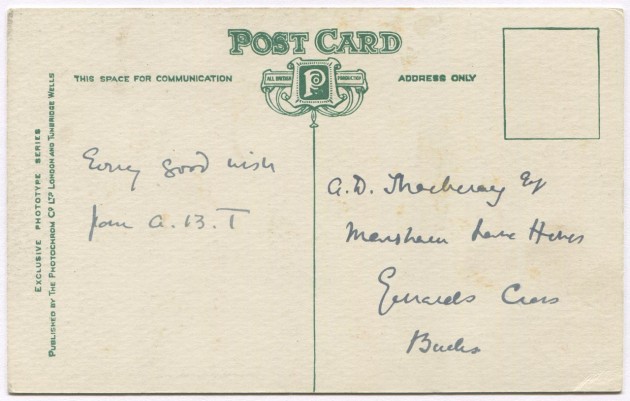 POST CARD
THIS SPACE FOR COMMUNICATION
ALL BRITISH
PRODUCTION
ADDRESS ONLY
EXCLUSIVE PHOTOTYPE SERIES
PUBLISHED BY THE PHOTOCHROM Co LTD LONDON AND TUNBRIDGE WELLS
Every good wish
from A.B.T
A.D. Thackeray Esq
Lane
Gerrards Cross
Bucks